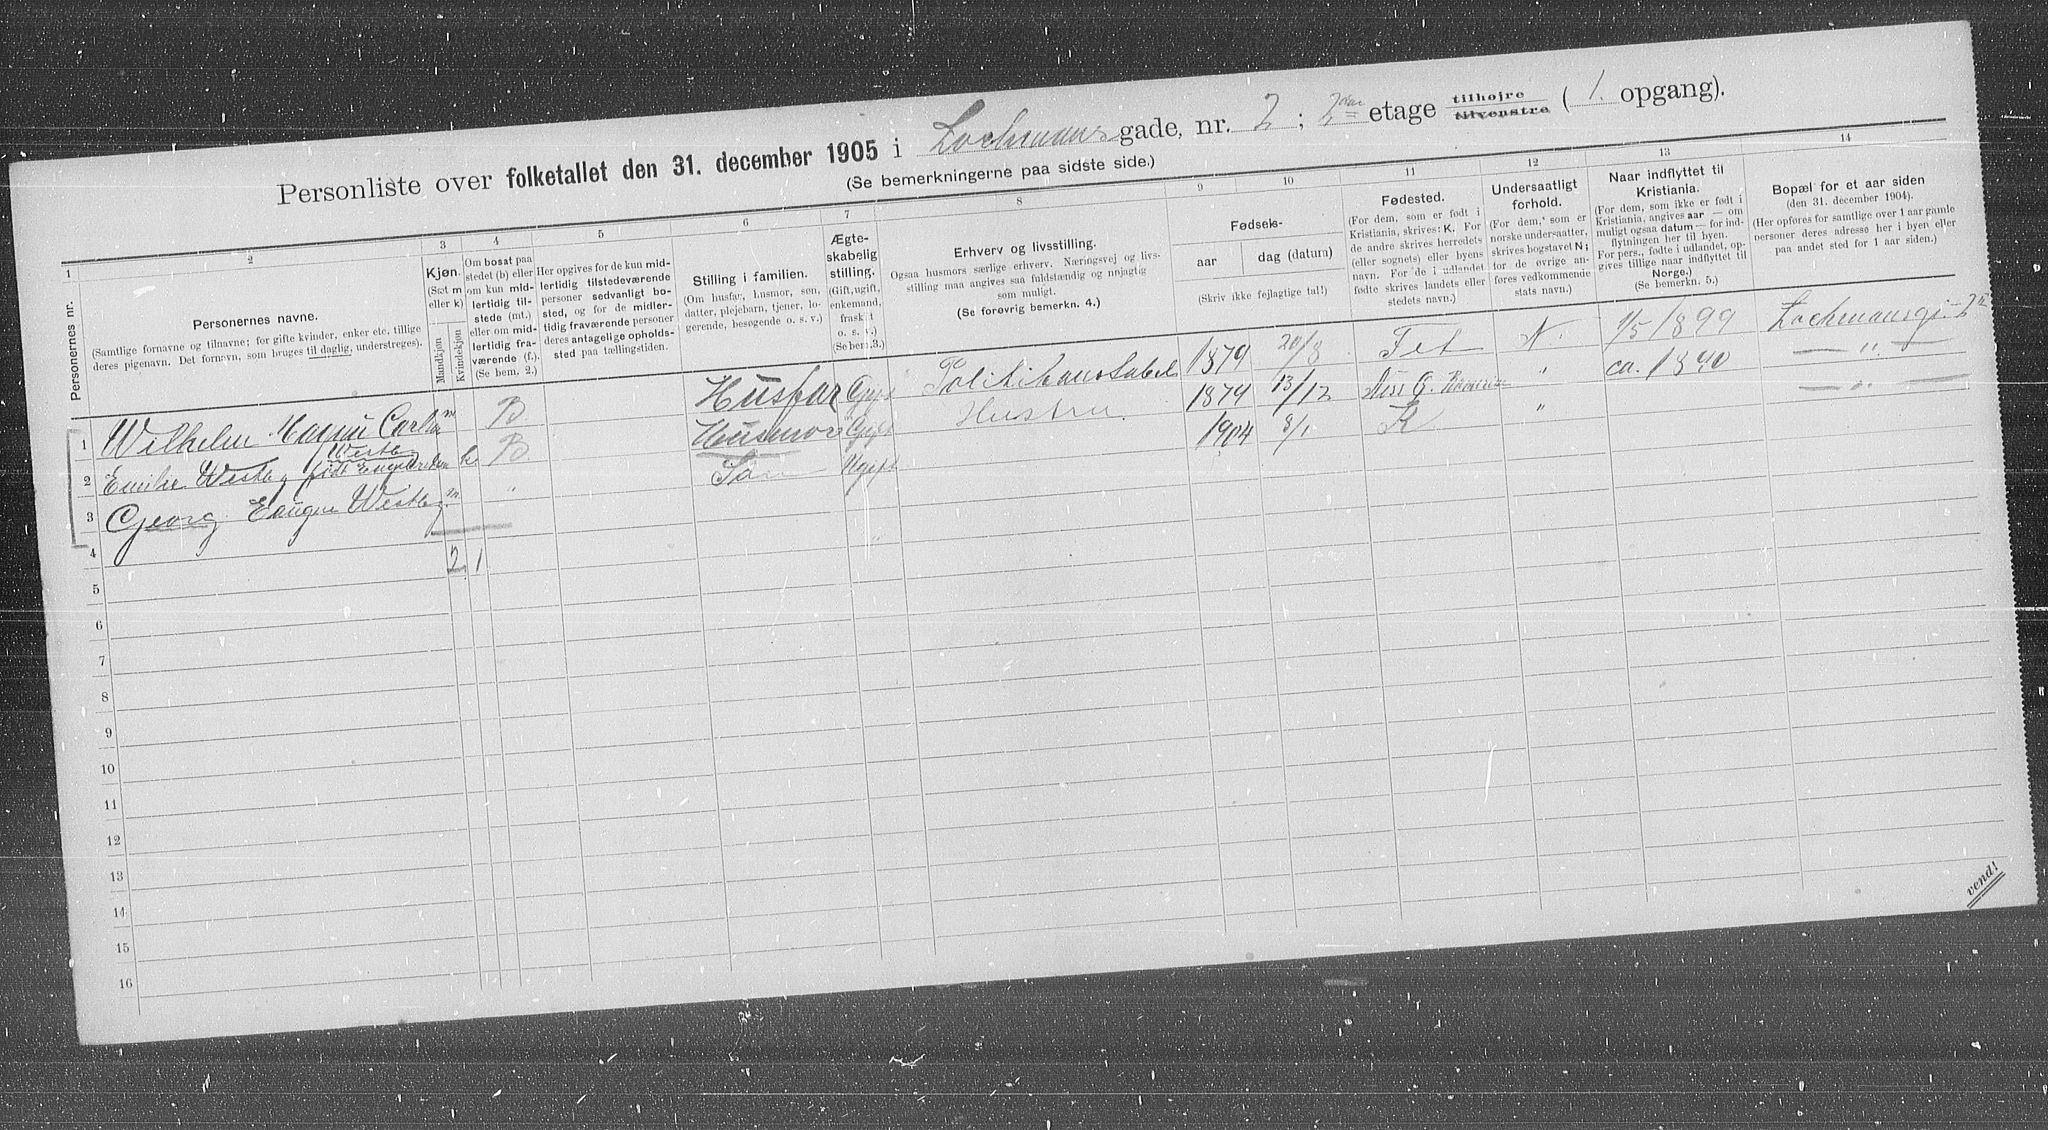 Personliste over folketallet den 31. december 1905 i Lochmans gade, nr. 2; 2den etage tilhøjre tilvenstre (1. opgang).
(Se bemerkningerne paa sidste side.)
1 2 3 4 5 6 7 8 9 10 11 12 13 14
Personernes nr.
Personernes navne.
(Samtlige fornavne og tilnavne; for gifte kvinder, enker etc. tillige
deres pigenavn. Det fornavn, som bruges til daglig, understreges).
Kjøn.
(Sæt m
eller k)
Mandkjøn
Kvindekjøn
Om bosat paa
stedet (b) eller
om kun mid-
lertidig til-
stede (mt.)
eller om mid-
lertidig fra-
værende (f.).
(Se bem. 2.)
Her opgives for de kun mid-
lertidig tilstedeværende
personer sedvanligt bo-
sted, og for de midler-
tidig fraværende personer
deres antagelige opholds-
sted paa tællingstiden.
Stilling i familien.
(Om husfar, husmor, søn,
datter, plejebarn, tjener, lo-
gerende, besøgende o. s. v.)
Ægte-
skabelig
stilling.
(Gift, ugift,
enkemand,
fraskilt
o. s. v.)
(Se bem. 3.)
Erhverv og livsstilling.
Ogsaa husmors særlige erhverv. Næringsvej og livs-
stilling maa angives saa fuldstændig og nøjagtig
som muligt.
(Se forøvrig bemerkn. 4.)
Fødsels-
aar
dag (datum)
(Skriv ikke fejlagtige tal!)
Fødested.
(For dem, som er født i
Kristiania, skrives: K. For
de andre skrives herredets
(eller sognets) eller byens
navn. For de i udlandet
fødte skrives landets eller
stedets navn.)
Undersaatligt
forhold.
(For dem, som er
norske undersaatter,
skrives bogstavet N;
for de øvrige an-
føres vedkommende
stats navn.)
Naar indflyttet til
Kristiania.
(For dem, som ikke er født i
Kristiania, angives aar — om
muligt ogsaa datum — for ind-
flytningen her til byen.
For pers., fødte i udlandet, op-
gives tillige naar indflyttet til
Norge.)
(Se bemerkn. 5.)
Bopæl for et aar siden
(den 31. december 1904).
(Her opføres for samtlige over 1 aar gamle
personer deres adresse her i byen eller
paa andet sted for 1 aar siden.)
1 Wilhelm Magnu Carl Westby m B Husfar Gift Politikonstabel 1879 20/8 Fet N. 1/5 1899 Lochmansg. 2
2 Emilie Westby født k B Husmor Gift Hustru 1879 13/12 Næs Romerike " ca. 1890 — " —
3 Georg Eaugen Westby m " Søn Ugift 1904 8/1 K " — " —
4 2 1
5
6
7
8
9
10
11
12
13
14
15
16
vend!